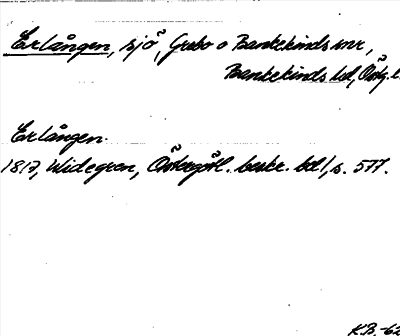 Erlången, sjö, Grebo o Bankekinds snr,
Bankekinds hd, Östg. l.
Erlången
1817, Widegren, Östergötl. beskr. bd 1, s. 577.
K.B. -62